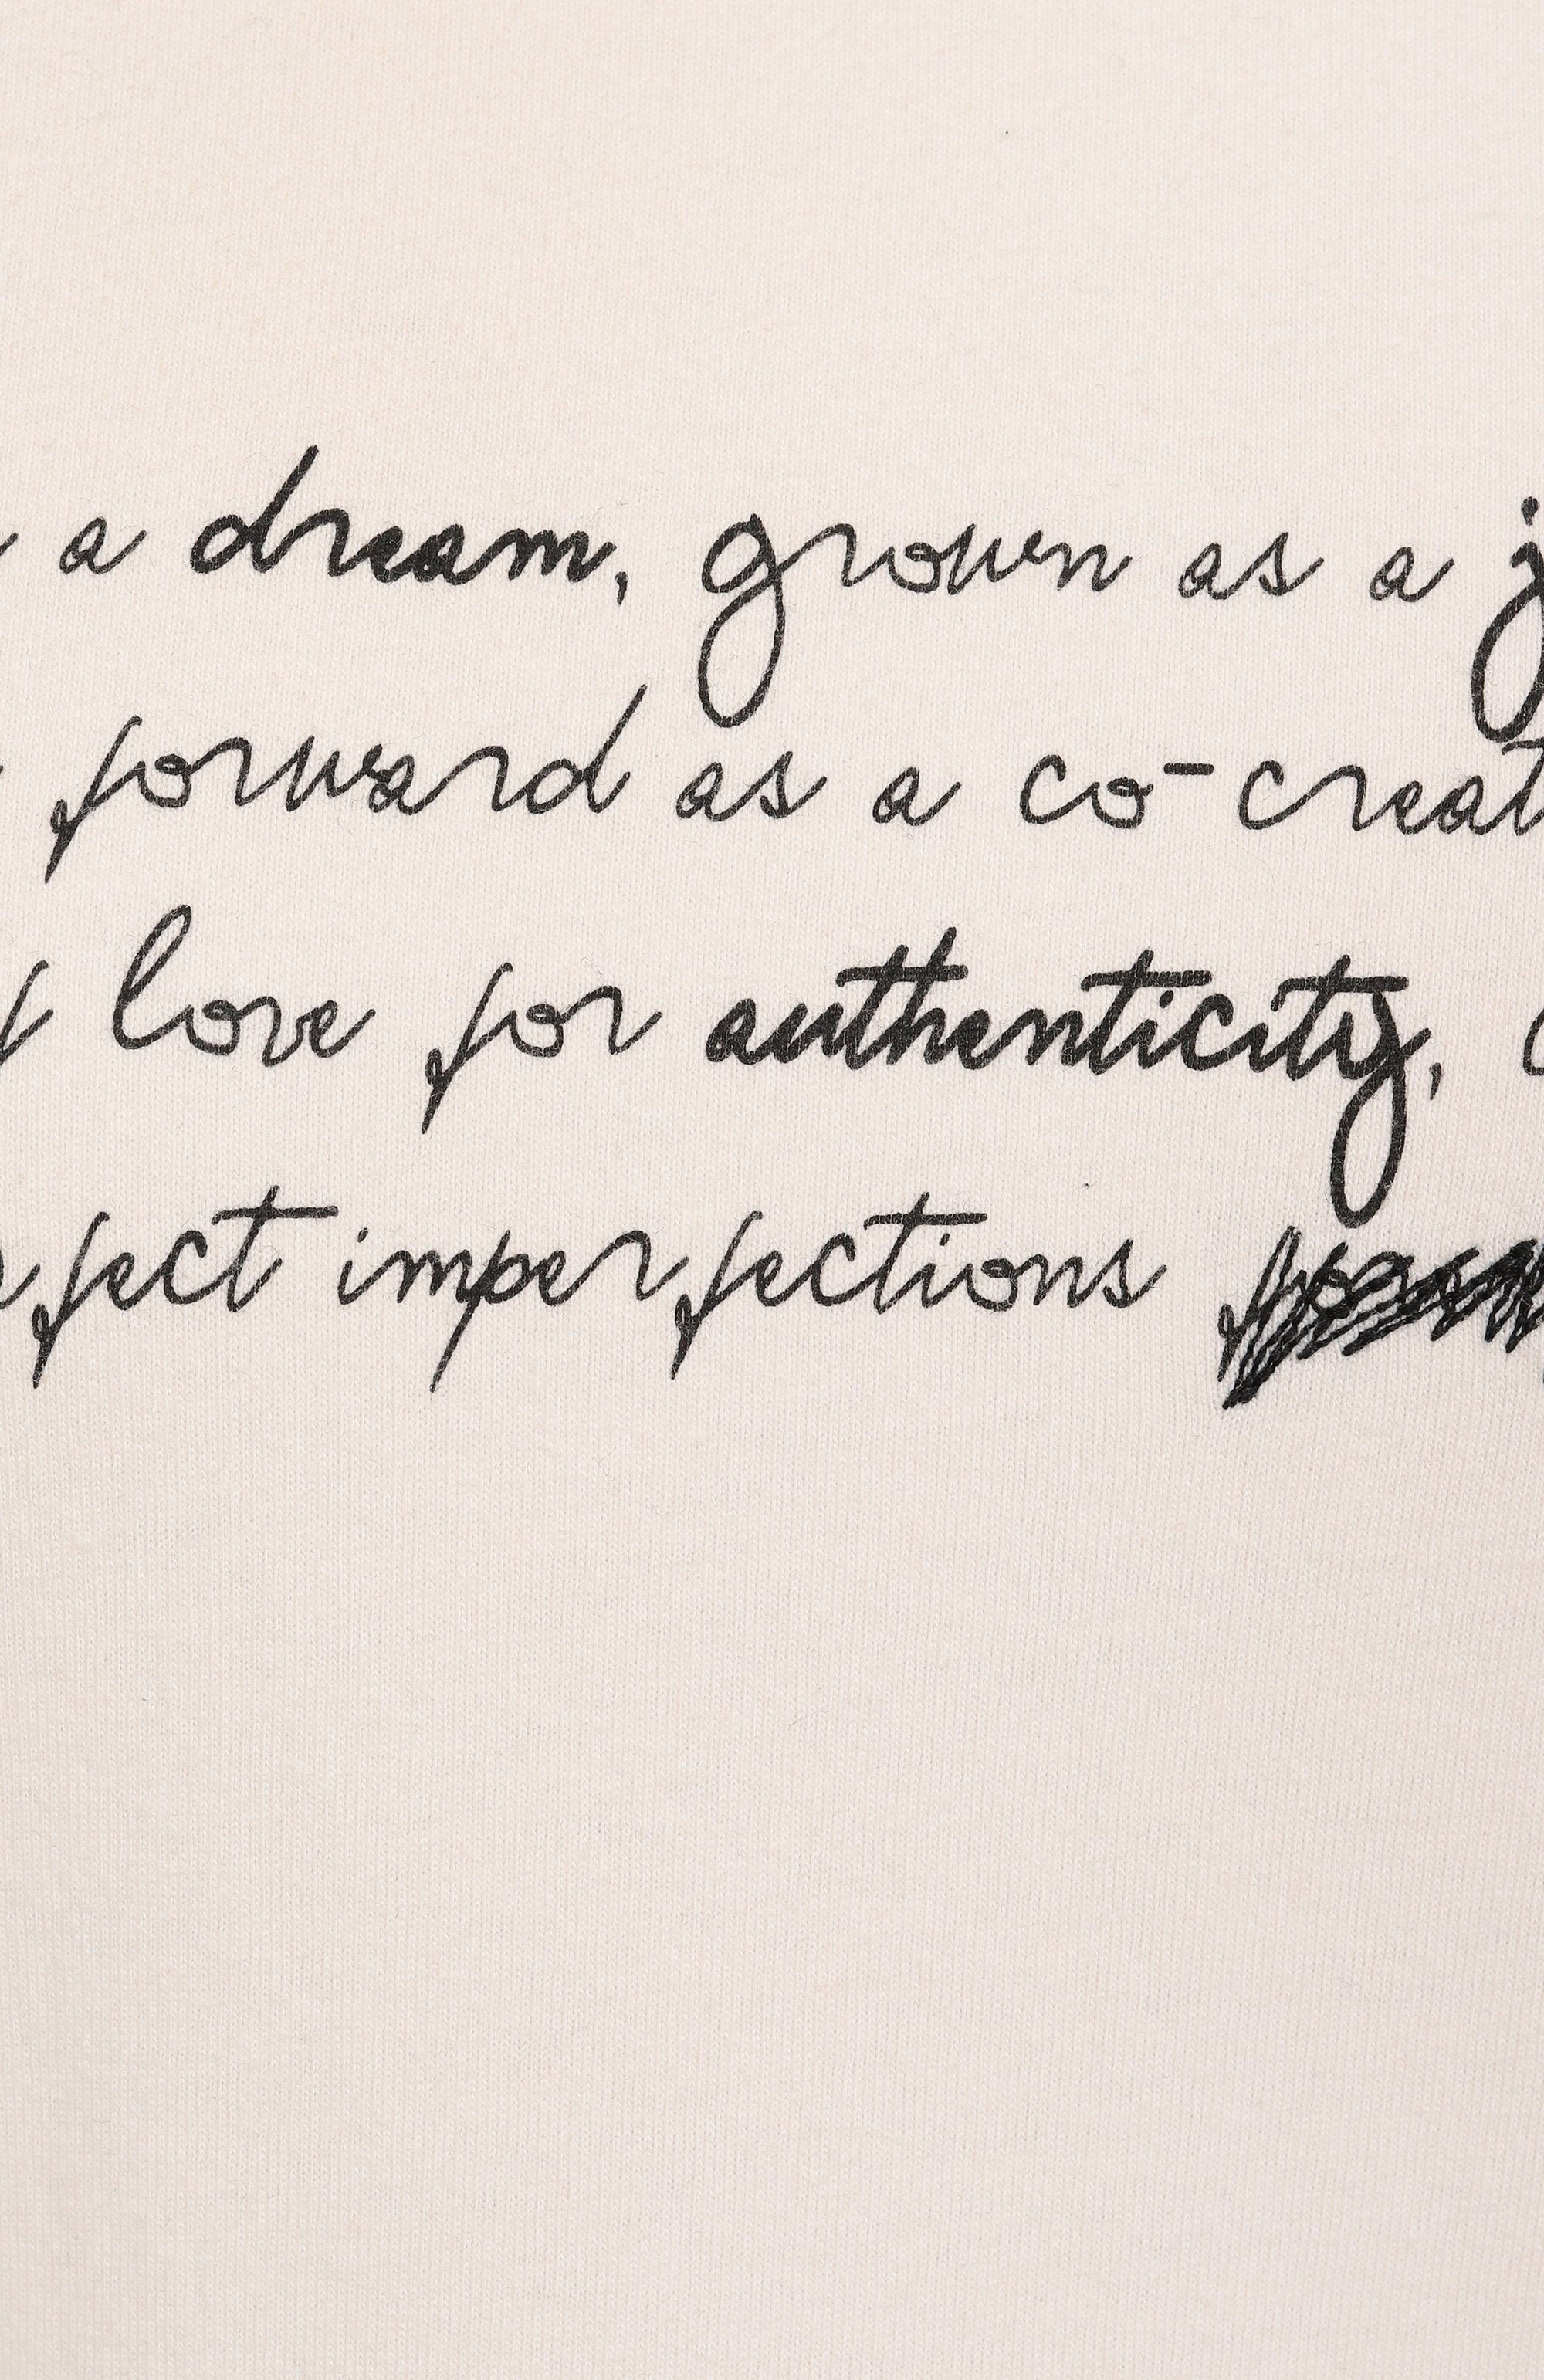 a dream, grown as a
forward as a co-creat
love for authenticity,
fect imperfections